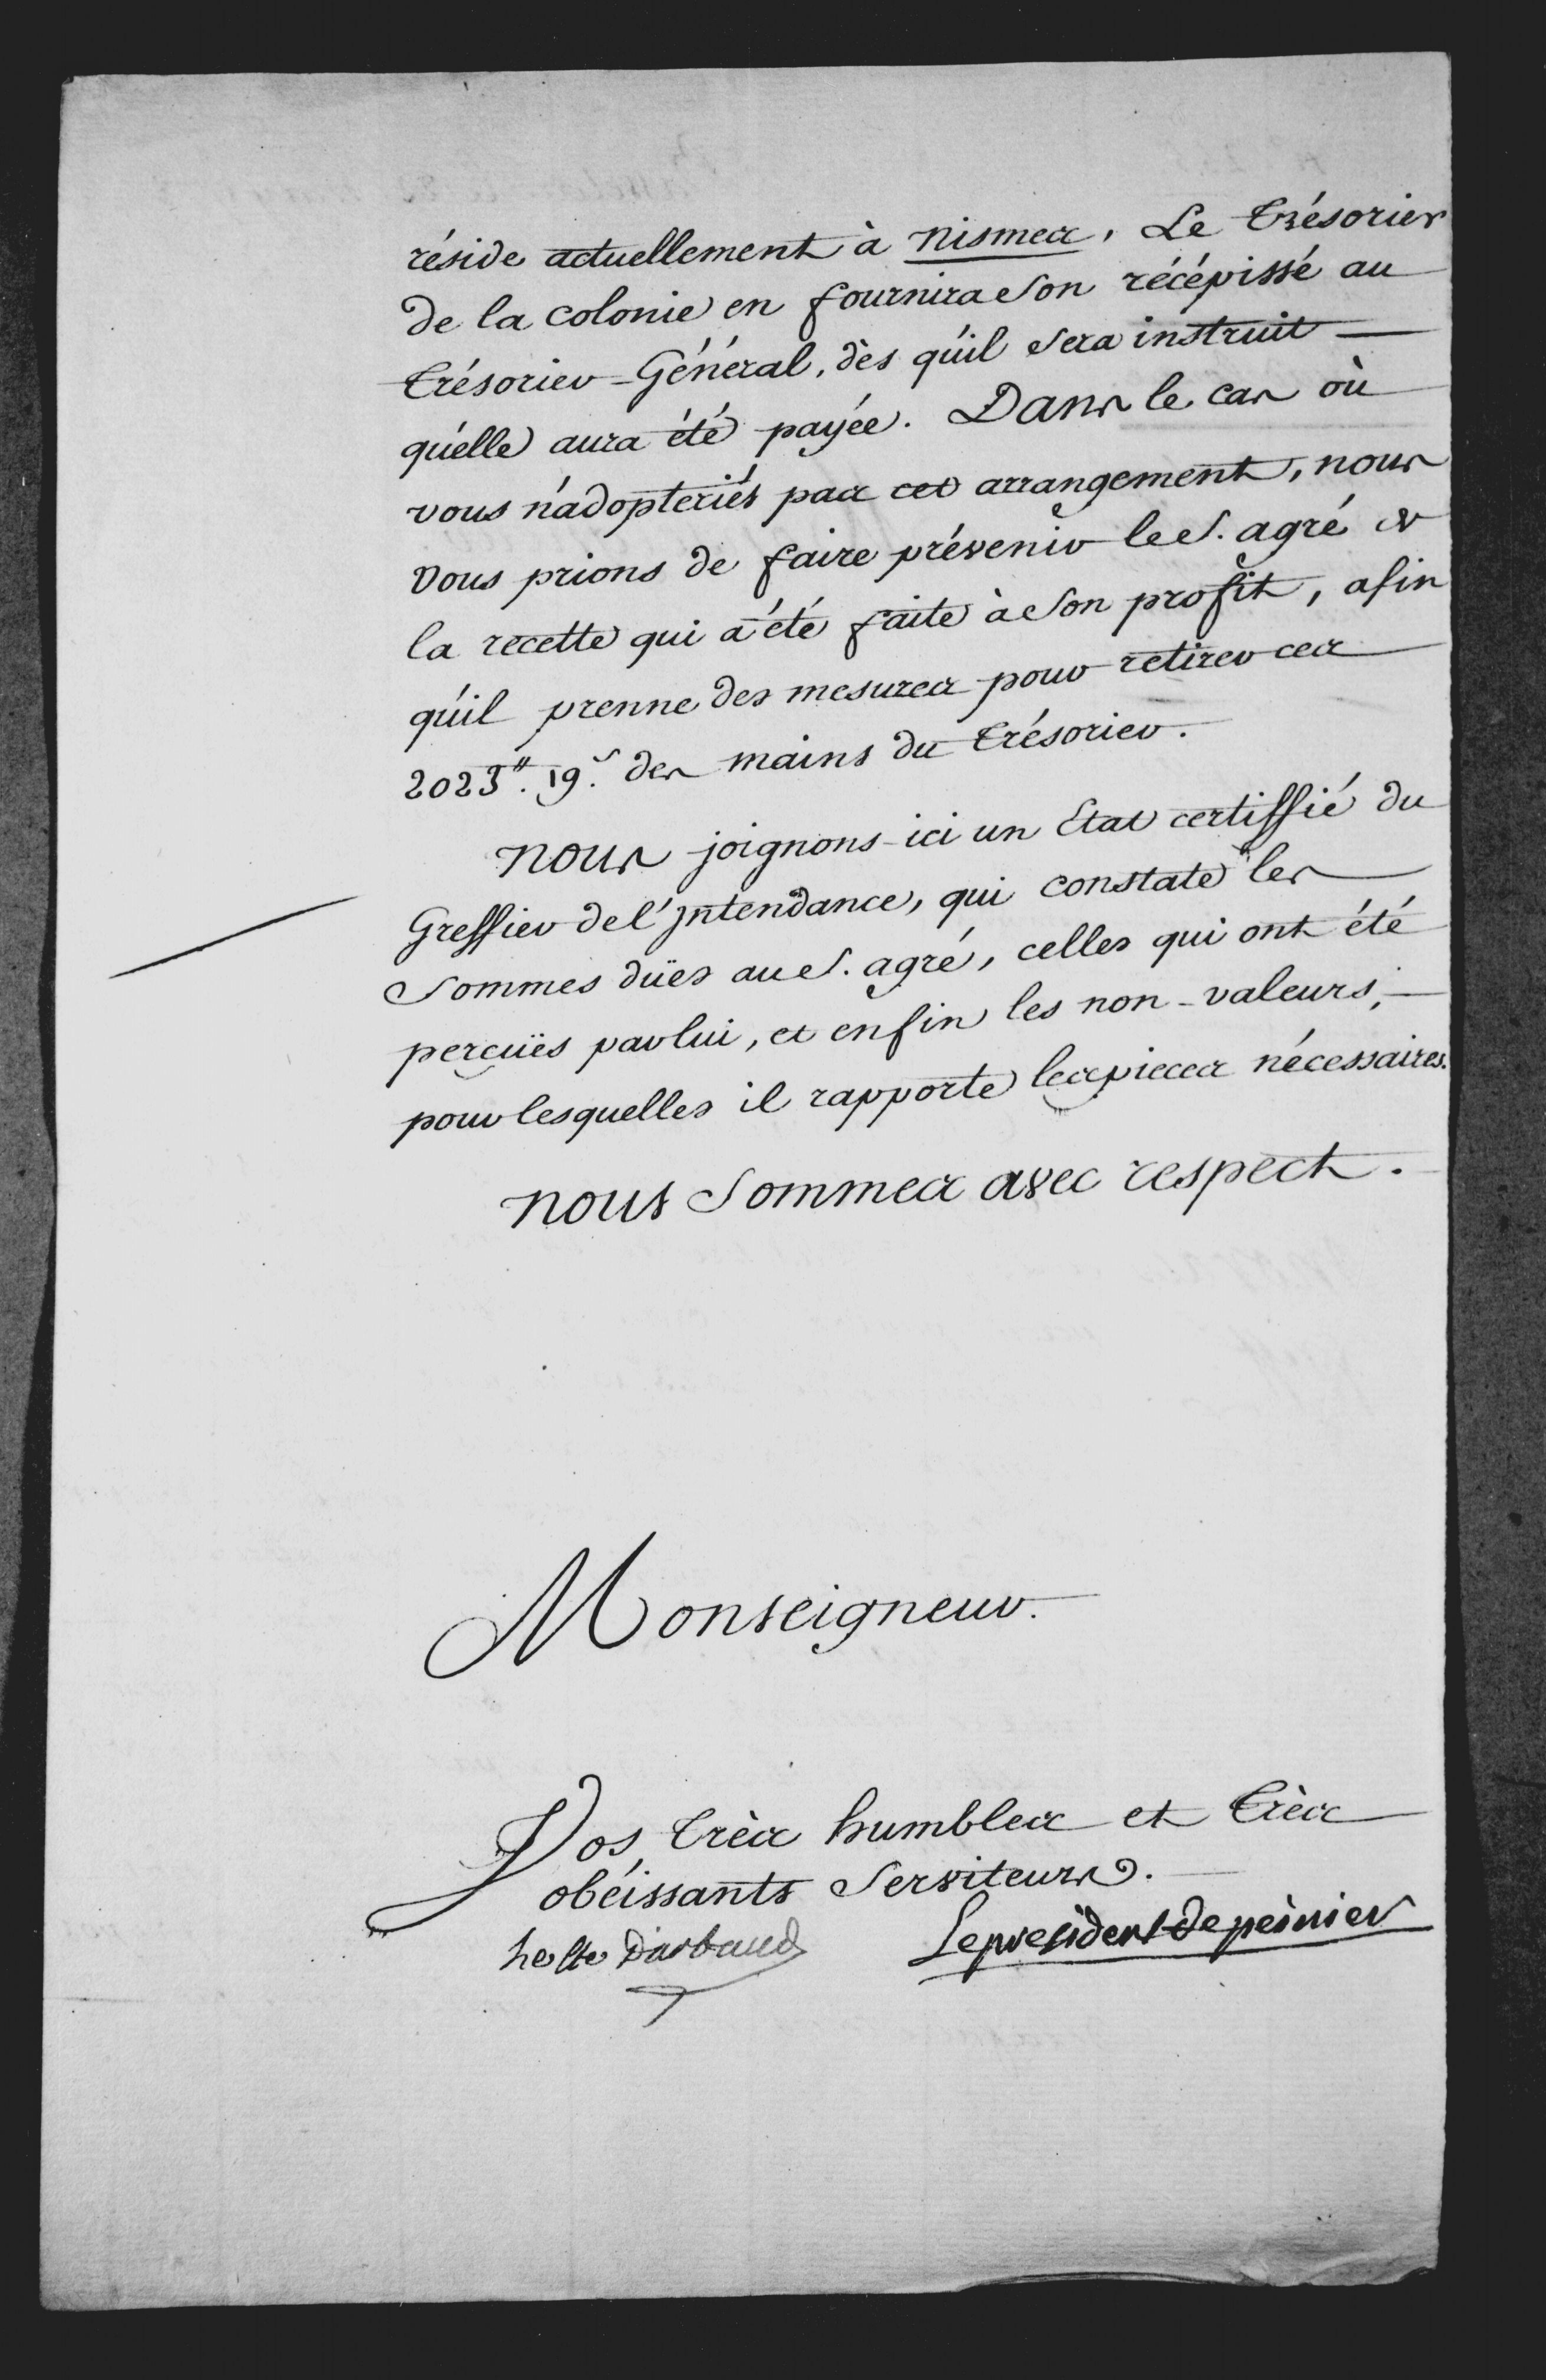 réside actuellement à nismes. Le trésorier
de la colonie en fournira son récépissé au
trésorier-Général, dès qu'il sera instruit
qu'elle aura été payée. Dans le cas où
vous n'adopteriés pas cet arrangement, nous
vous prions de faire prévenir le S. agré de
la recette qui a été faite à son profit, afin
qu'il prenne des mesures pour retirer ces
2023ᵗᵗ. 19ˢ. des mains du trésorier.
nous joignons ici un Etat certiffié du
Greffier de l'Intendance, qui constate les
sommes dües au S. agré, celles qui ont été
perçües par lui, et enfin les non-valeurs,
pour lesquelles il rapporte les pieces nécessaires.
nous sommes avec respect.
Monseigneur.
Vos très humbles et très
obéissants serviteurs.
D'arbaud
Le president de peinier